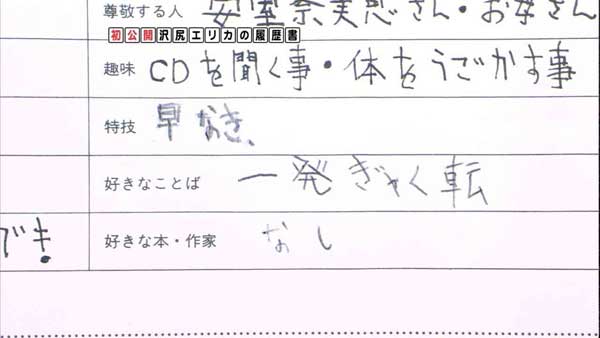 尊敬する人 安室奈美恵さん・お母さん
初公開沢尻エリカの履歴書
趣味 CDを聞く事・体をうごかす事
特技 早なき、
好きなことば 一発ぎゃく転
でき! 好きな本・作家 なし